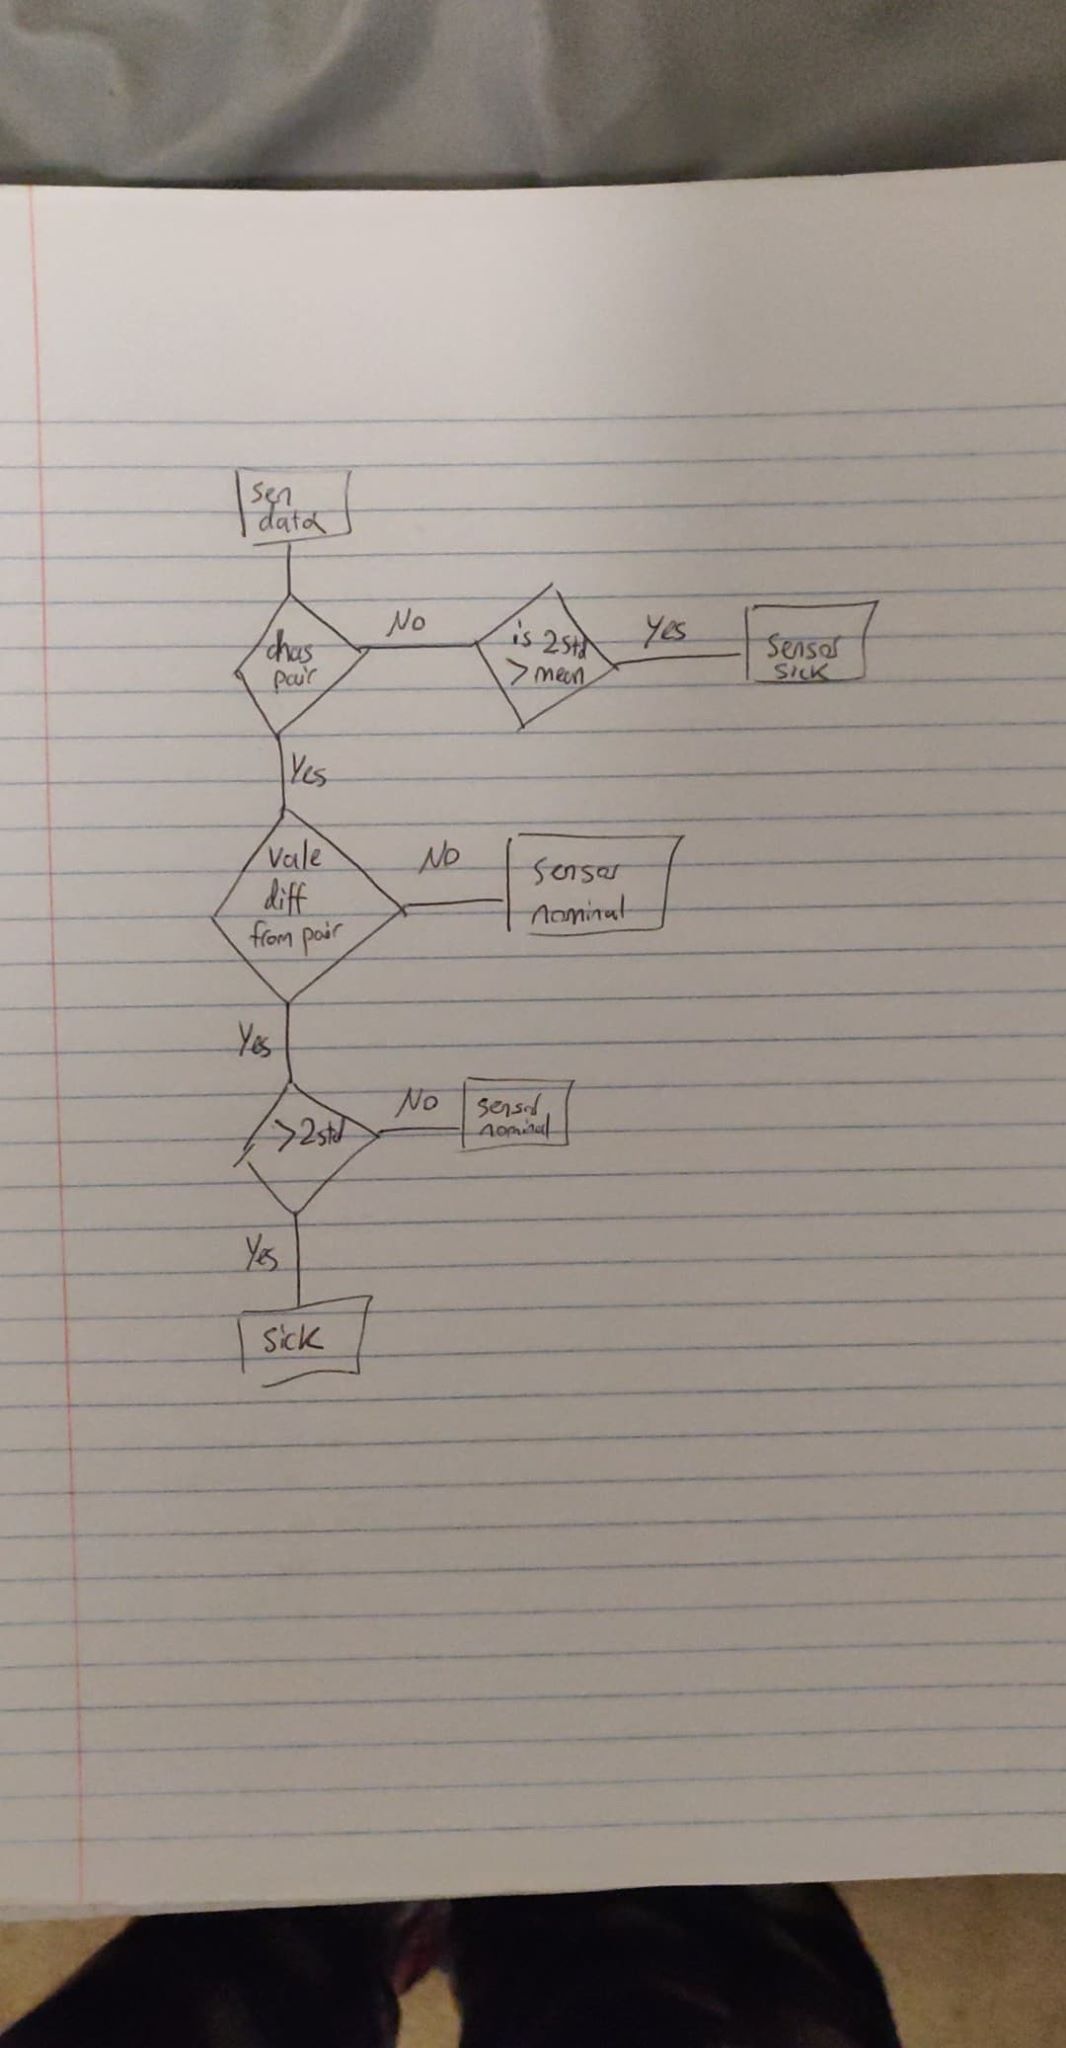 sen
data
No
is 2std
> mean
Yes
sensor
sick
pair
Yes
Vale
diff
from pair
No
sensor
nominal
Yes
>2std
No
sensor
nominal
Yes
sick